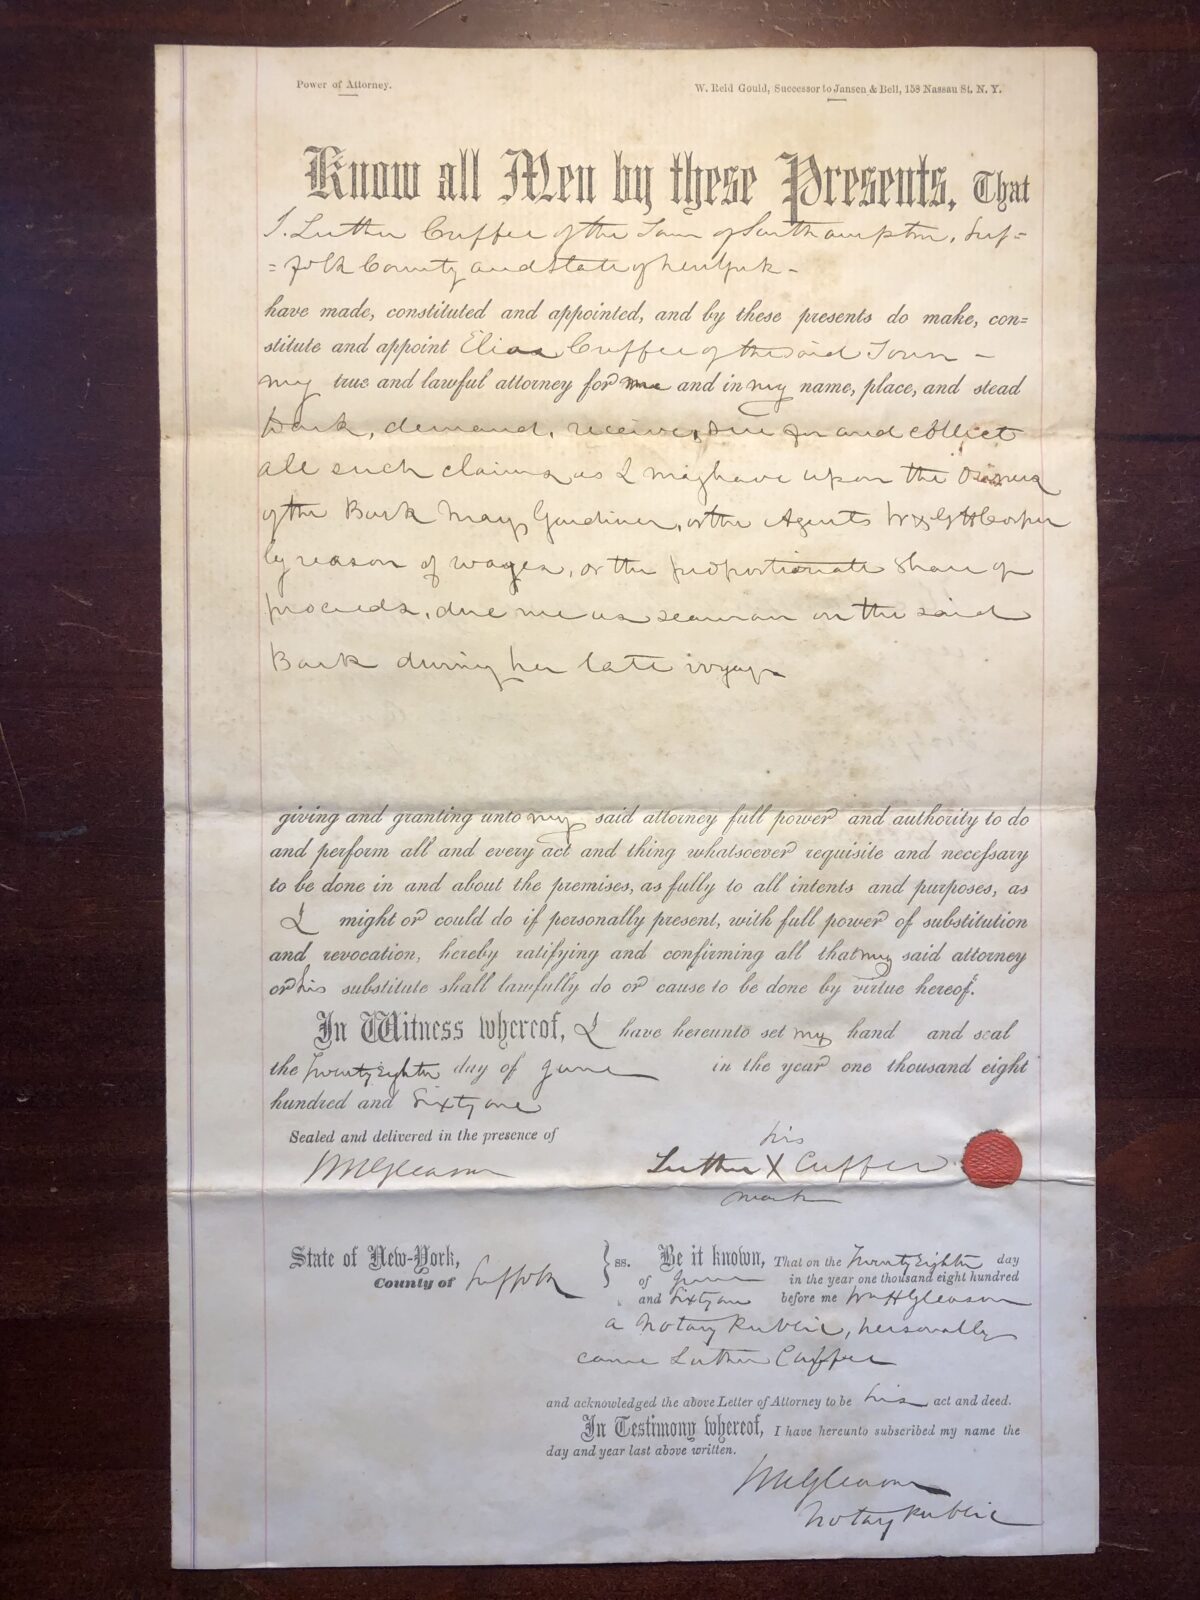 Power of Attorney.
W. Reid Gould, Successor to Jansen & Bell, 158 Nassau St. N. Y.
Know all Men by these Presents, That
I. Luther Cuffee of the Town of Southampton, Suf=
=folk County and State of New York -
have made, constituted and appointed, and by these presents do make, con=
stitute and appoint Elias Cuffee of the said Town -
my true and lawful attorney for me and in my name, place, and stead
to ask, demand, receive, sue for and collect
all such claims as I may have upon the Owners
of the Bark Mary Gardiner, or the Agents H Cooper
by reason of wages, or the proportionate share of
proceeds, due me as seaman on the said
Bark during her late voyage
giving and granting unto my said attorney full power and authority to do
and perform all and every act and thing whatsoever requisite and necessary
to be done in and about the premises, as fully to all intents and purposes, as
I might or could do if personally present, with full power of substitution
and revocation, hereby ratifying and confirming all that my said attorney
or his substitute shall lawfully do or cause to be done by virtue hereof.
In Witness whereof, I have hereunto set my hand and seal
the Twenty Eighth day of June in the year one thousand eight
hundred and Sixty one
Sealed and delivered in the presence of
his
Wm H Gleason
Luther X Cuffee
mark
State of New-York,
County of Suffolk
ss. Be it known, That on the Twenty Eighth day
of June in the year one thousand eight hundred
and Sixty one before me Wm H Gleason
a Notary Public, personally
came Luther Cuffee
and acknowledged the above Letter of Attorney to be his act and deed.
In Testimony whereof, I have hereunto subscribed my name the
day and year last above written.
Wm H Gleason
Notary Public